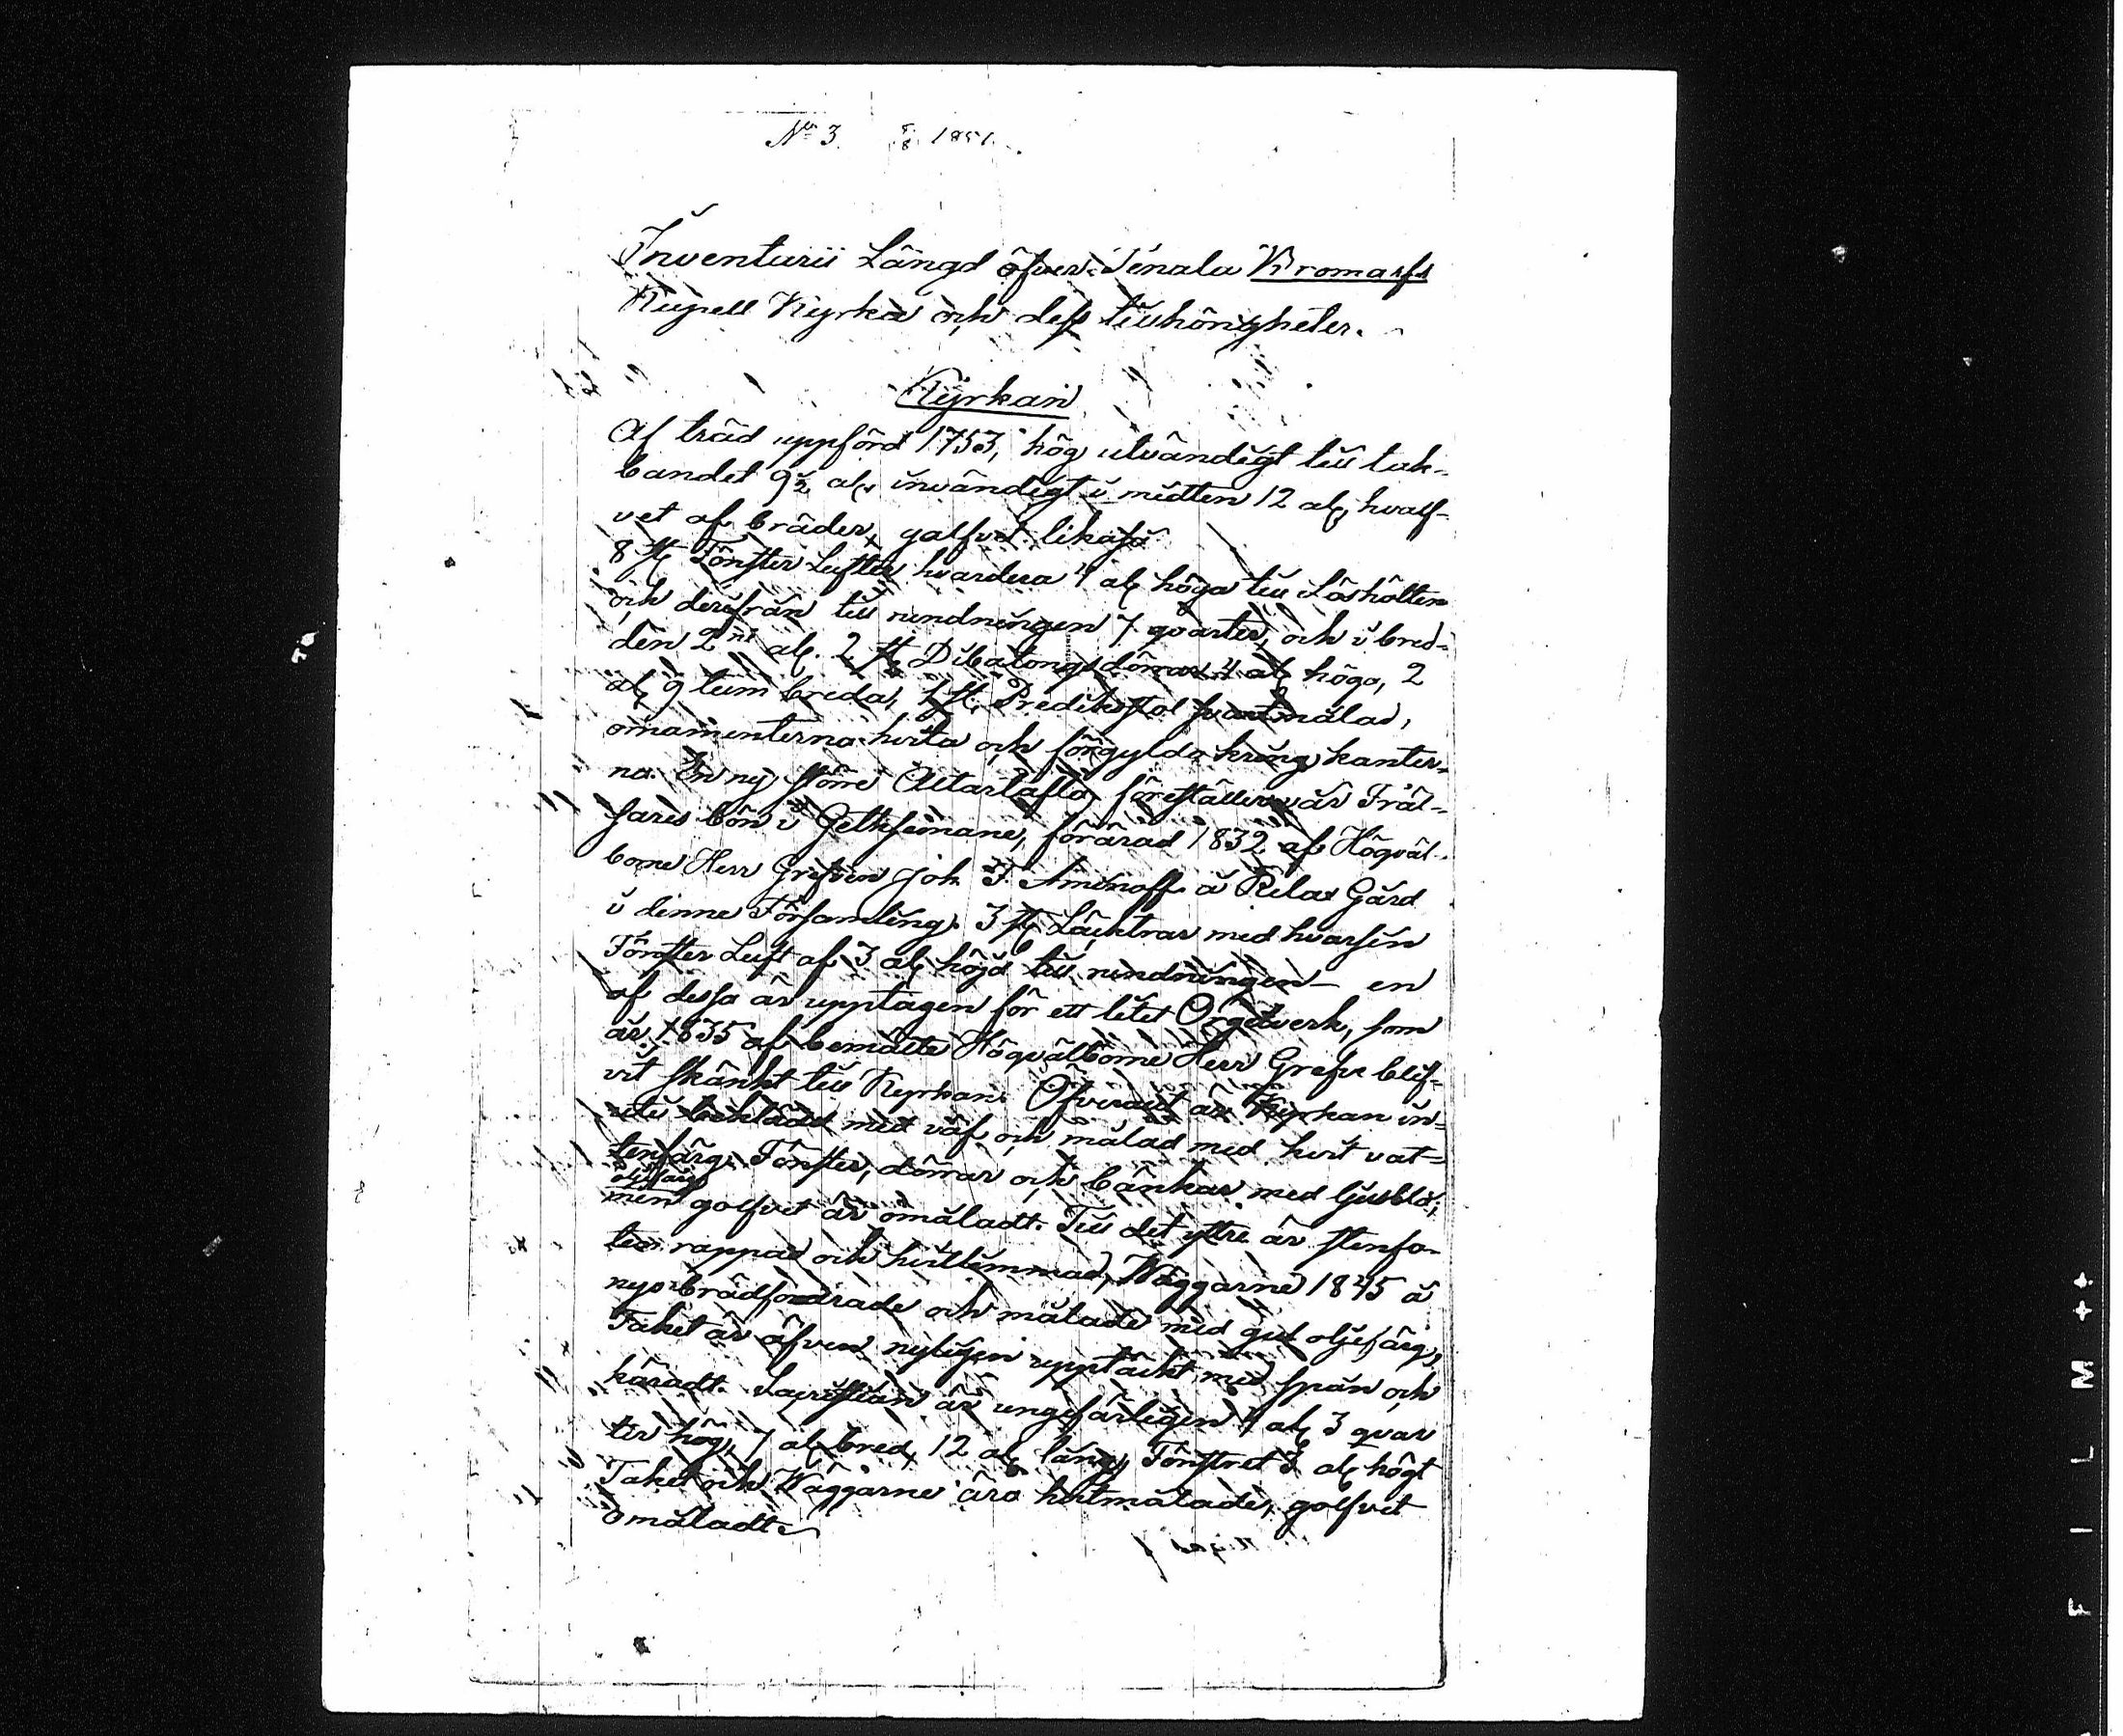 No 3. 8/8 1851.
Inventarii Längd öfver Tenala Bromarfs
Kapell Kyrka och dess tillhörigheter.
Kyrkan
Af träd uppförd 1753, hög utvändigt till tak-
bandet 9½ aln. invändigt i midten 12 aln, hvalf-
vet af bräder, golfvet likaså
8 st Fönster Lufter hvardera 4 aln höga till Låshölten
och derifrån till rundningen 7 qvarter, och i bred-
den 2 aln. 2 st dörrar 4 aln höga, 2
aln 9 tum breda, 1 st. Predikstol svartmålad,
ornamenterna hvita och förgylda kring kanter-
na. En ny större Altartafla föreställer vår Fräl-
sares bön i Gethsemane, förärad 1832 af Högväl-
borne Herr Grefven Joh. F. Aminoff å Rilax Gård
i denne Församling. 3 st Läcktrar med hvarsin
Fönster Luft af 3 aln höjd till rundningen – en
af dessa är upptagen för ett litet Orgelverk, som
år 1835 af bemälte Högvälborne Herr Grefve blif-
vit skänkt till Kyrkan. Öfverallt är Kyrkan in-
uti beklädd med väf och målad med hvit vat-
tenfärg. Fönster, dörrar och bänkar med ljusblå,
oljefärg
men golfvet är omåladt. Till det yttre är stenfo-
ten rappad och hvitlimmad, Wäggarne 1845 å
nyo brädfodrade och målade med gul oljefärg,
Taket är äfven nyligen upptäckt med spån och
tjäradt. Sacristian är ungefärligen 4 aln 3 qvar
ter hög, 7 aln bred, 12 aln lång, Fönstret 3 aln högt
Taket och Wäggarne äro hvitmålade, golfvet
omåladt.